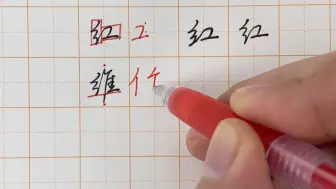 红 工 红 红
维 亻